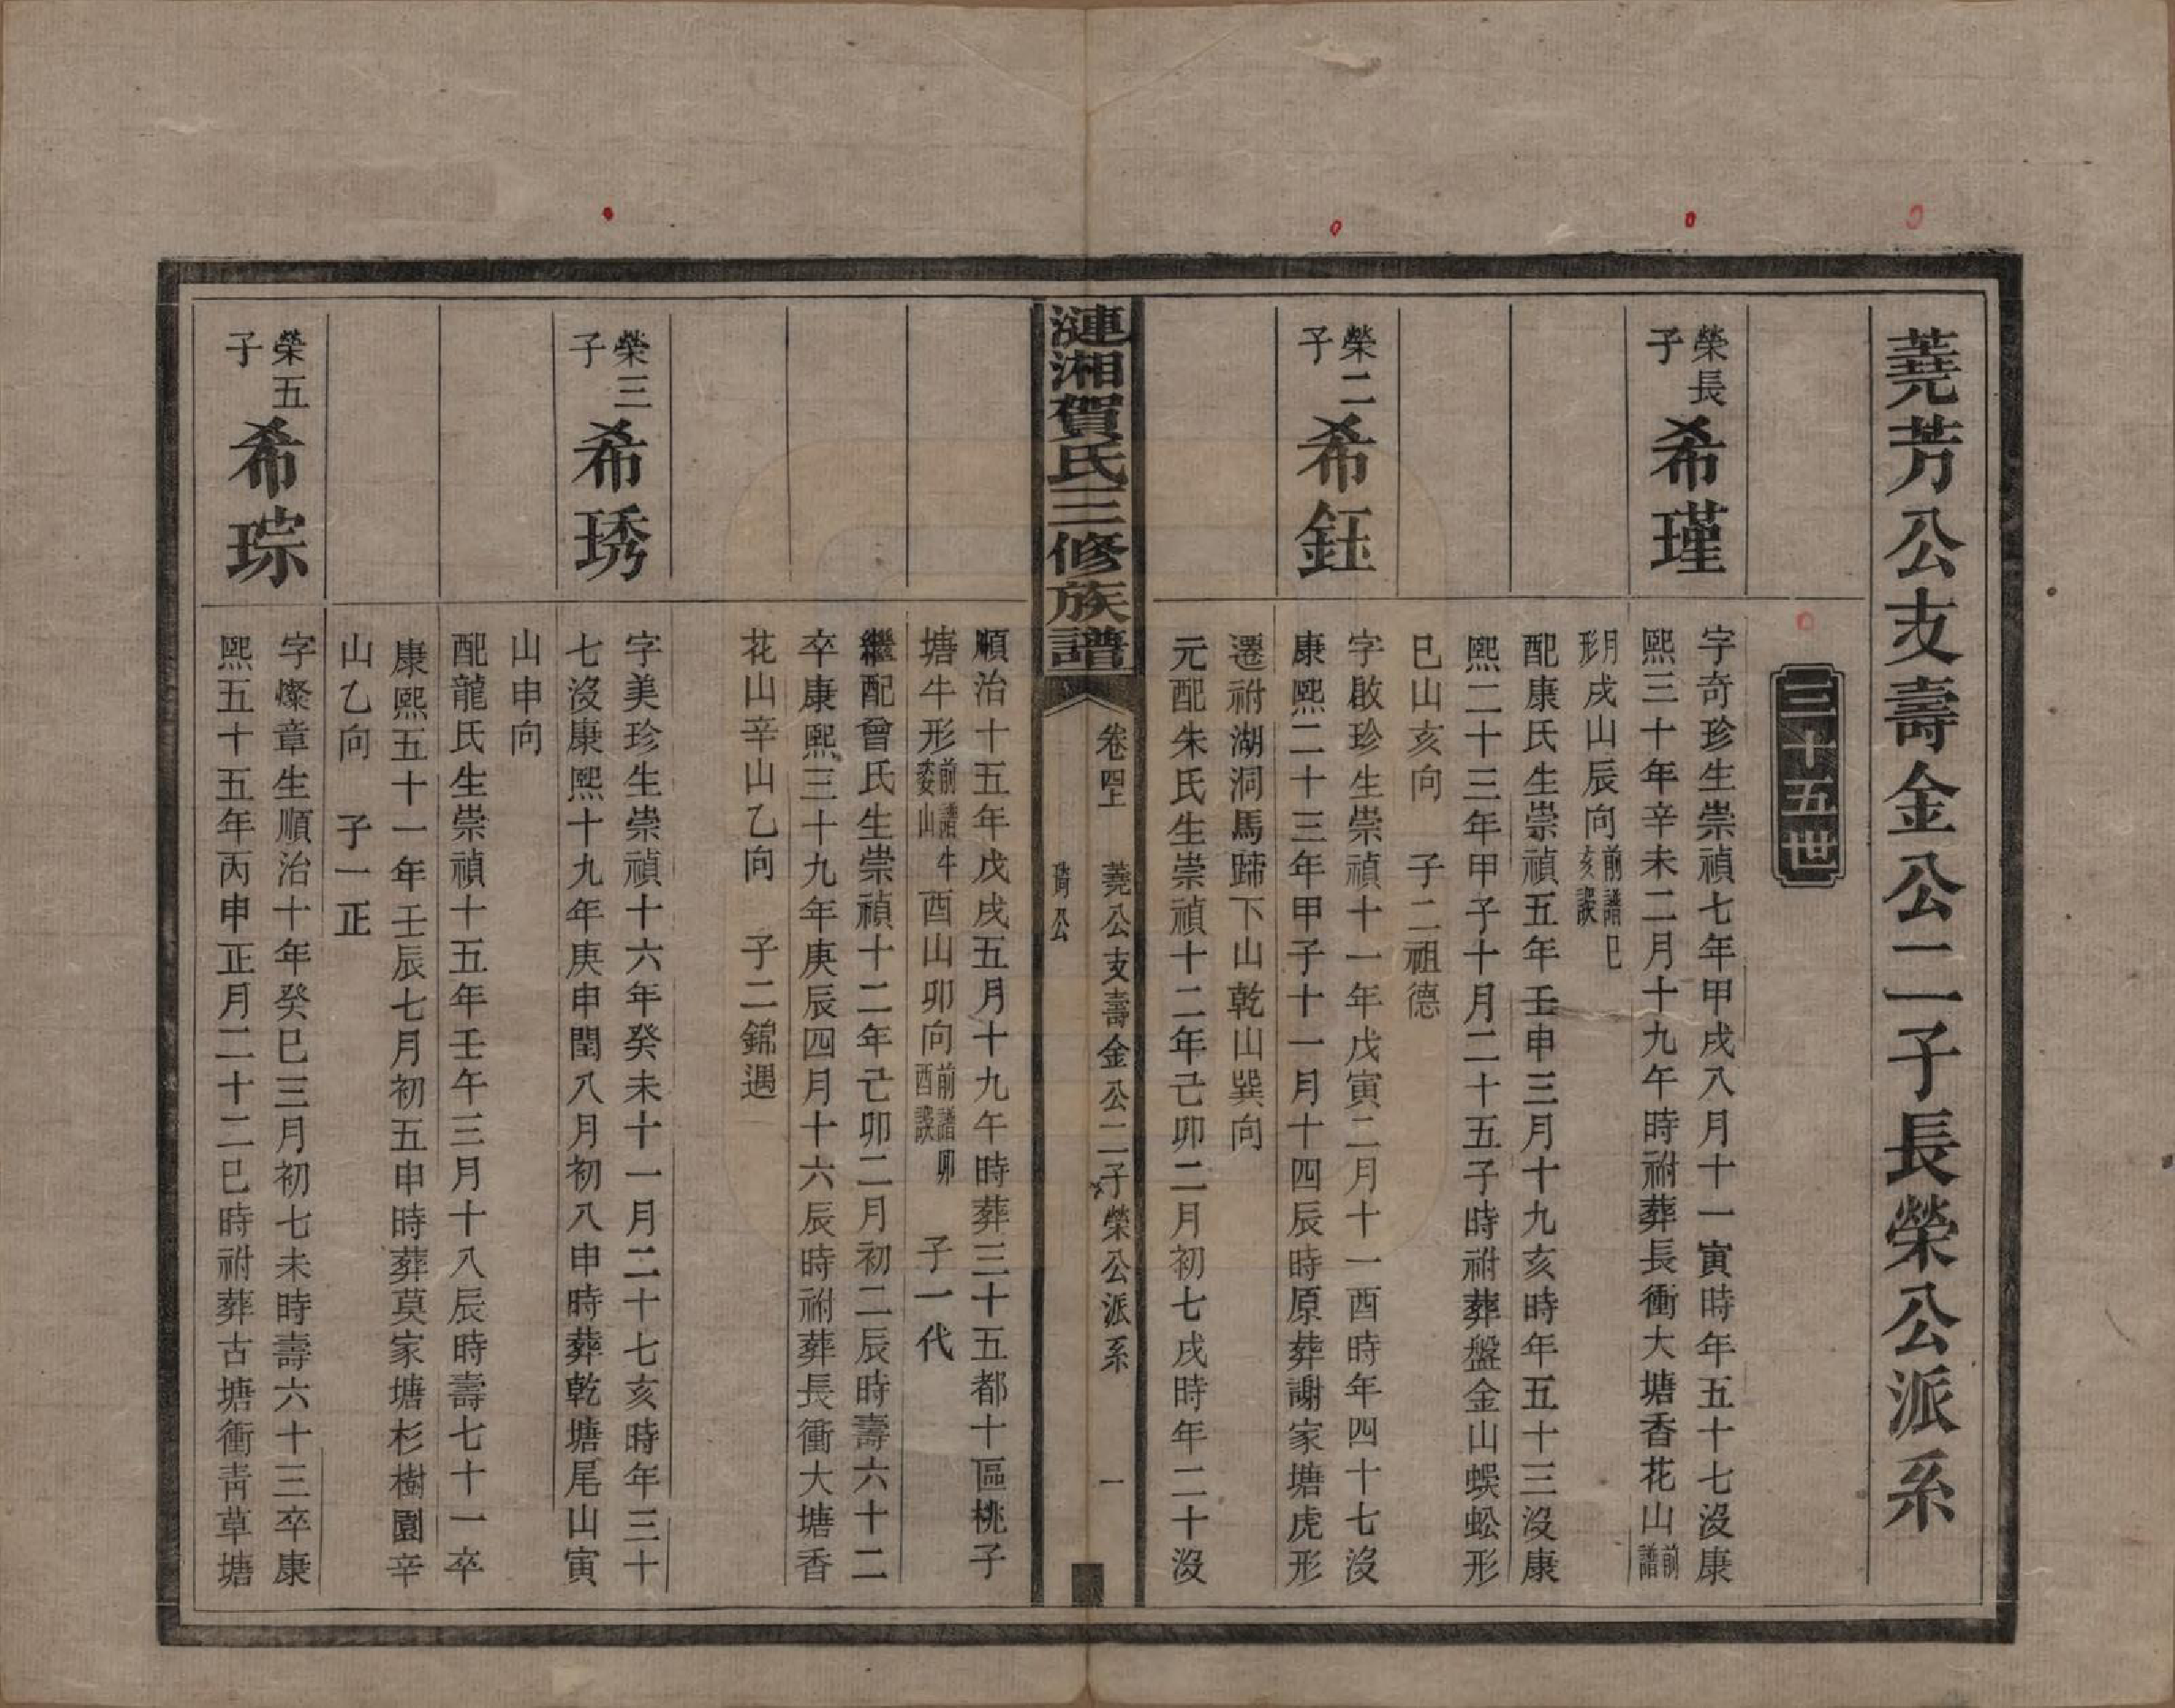 蕘芳公支壽金公二子長榮公派系
三十五世
榮長子
希瑾
字奇珍生崇禎七年甲戌八月十一寅時年五十七沒康
熙三十年辛未二月十九午時祔葬長衝大塘香花山前譜
月形戌山辰向前譜巳亥誤
配康氏生崇禎五年壬申三月十九亥時年五十三沒康
熙二十三年甲子十月二十五子時祔葬盤金山蜈蚣形
巳山亥向　子二祖德
榮二子
希鈺
字啟珍生崇禎十一年戊寅二月十一酉時年四十七沒
康熙二十三年甲子十一月十四辰時原葬謝家塘虎形
遷祔湖洞馬蹄下山乾山巽向
元配朱氏生崇禎十二年己卯二月初七戌時年二十沒
漣湘賀氏三修族譜
卷四上
蕘公支壽金公二子榮公派系
一
順治十五年戊戌五月十九午時葬三十五都十區桃子
塘牛形前譜牛委山酉山卯向前譜卯酉誤　子一代
繼配曾氏生崇禎十二年己卯二月初二辰時壽六十二
卒康熙三十九年庚辰四月十六辰時祔葬長衝大塘香
花山辛山乙向　子二錦遇
榮三子
希琇
字美珍生崇禎十六年癸未十一月二十七亥時年三十
七沒康熙十九年庚申閏八月初八申時葬乾塘尾山寅
山申向
配龍氏生崇禎十五年壬午三月十八辰時壽七十一卒
康熙五十一年壬辰七月初五申時葬莫家塘杉樹園辛
山乙向　子一正
榮五子
希琮
字燦章生順治十年癸巳三月初七未時壽六十三卒康
熙五十五年丙申正月二十二巳時祔葬古塘衝青草塘